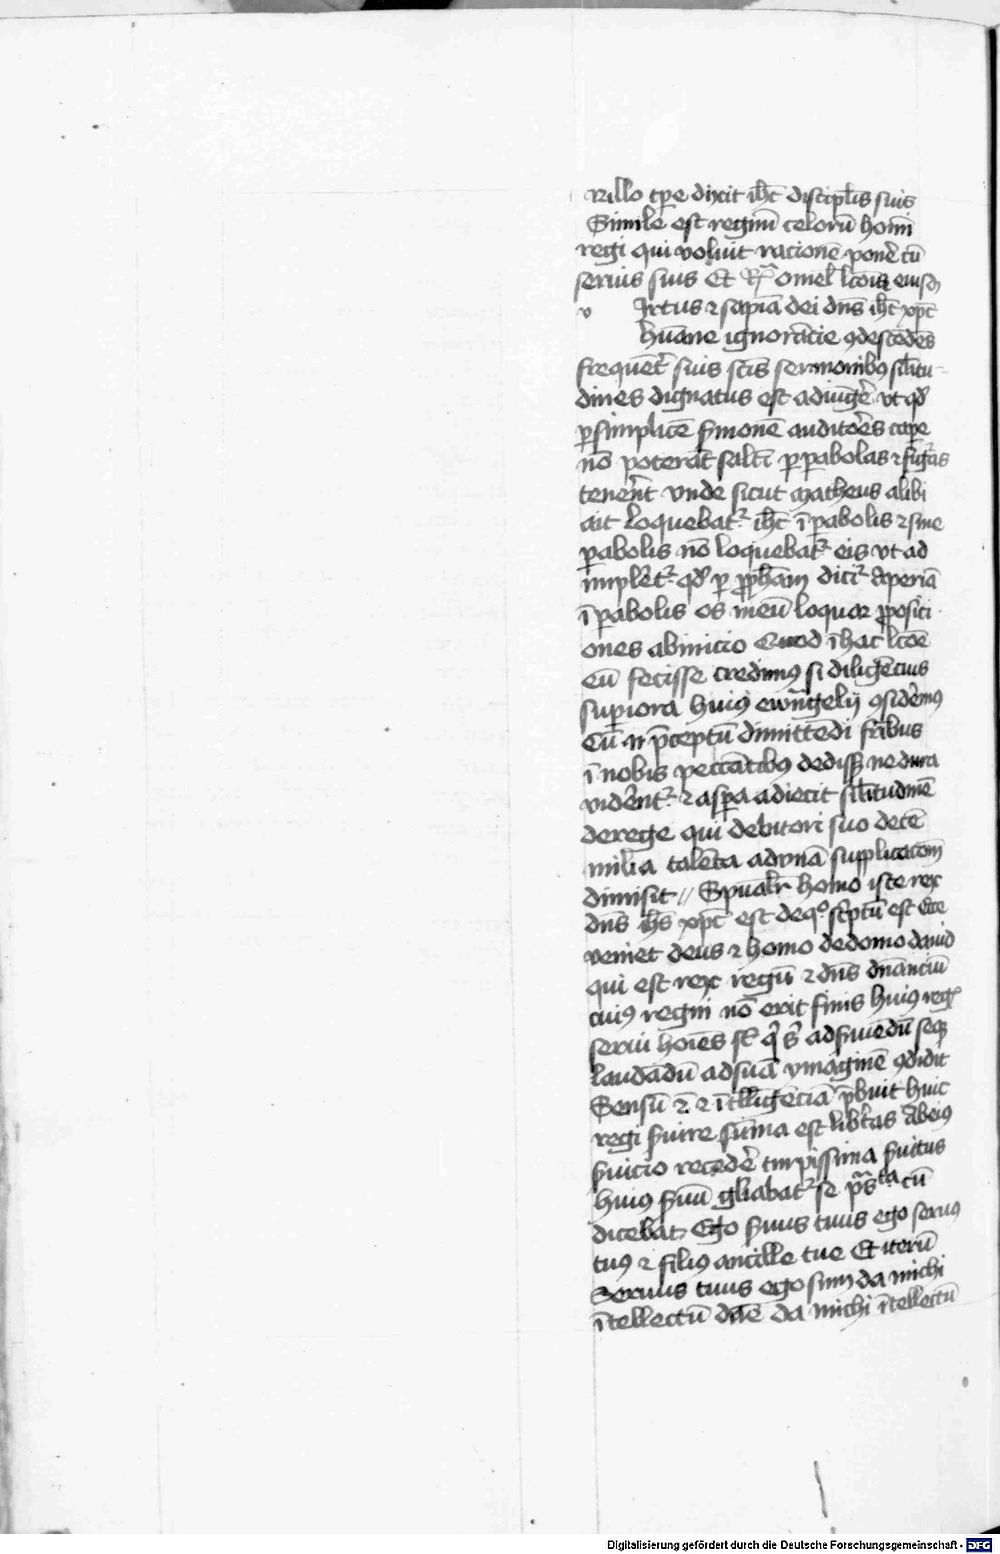 N illo tꝑe dixit ih̅c discipl̅is suis
Simile est regnu̅ celoru̅ homi̅
regi qui voluit racione̅ pone̅ cu̅
seruis suis Et Rᵃ Omel̅ lc̅ois eiusd̅
v Irtus ⁊ sapi̅a dei dn̅s ih̅c xp̅c
hu̅ane ignora̅cie ꝯdesce̅de̅s
freque̅t̅ suis sc̅is sermonibꝰ sil̅itu-
dines dignatus est adiu̅ge̅ vt qd̅
ꝑ simplice̅ s̅mone̅ audito̅es cape̅
no̅ potera̅t salte̅ ꝑ ꝑabolas ⁊ figᵃ̅s
tene̅nt vnde sicut Matheus alibi
ait loquebat̅ ih̅c i̅ ꝑabolis ⁊ sine
ꝑabolis no̅ loquebat̅ eis vt ad
implet̅ qd̅ ꝑ ꝓph̅am dicit̅ Aperia̅
i̅ ꝑabolis os meu̅ loquar ꝓposici-
ones ab inicio Quod i̅ hac lc̅oe
eu̅ fecisse credimꝰ si dilige̅cius
superiora huiꝰ ewa̅ngelij ꝯside̅mꝰ
Cu̅ n̅ p̅ceptu̅ dimitte̅di fr̅ibus
i̅ nobis pecca̅tibꝰ dediss̅ ne dura
vide̅nt̅ ⁊ asp̅a adiecit sil̅itudine̅
de rege qui debitori suo dece̅
milia tale̅ta ad vna̅ supplicacio̅m
dimisit // Sp̅ual̅r homo iste rex
dn̅s ih̅s xp̅c est de qᵒ sc̅ptu̅ est Ecce
veniet deus ⁊ homo de domo dauid
qui est rex regu̅ ⁊ dn̅s dn̅anciu̅
cuiꝰ regni no̅ erit finis huiꝰ reg̅
serui ho̅ies s̅t qˢ s̅ ad s̅uie̅du̅ seqꝫ
lauda̅du̅ ad sua̅ ymagine̅ ꝯdidit
Sensu̅ ⁊ ⁊ i̅tellige̅cia̅ p̅buit huic
regi s̅uire su̅ma est lib̅tas Ab eiꝰ
s̅uicio recede̅ turpissima s̅uitus
huiꝰ s̅uu̅ gl̅iabat̅ se ꝓᵃsta cu̅
dicebat Ego s̅uus tuus ego seruꝰ
tuꝰ ⁊ filiꝰ ancille tue Et iteru̅
Seruus tuus ego sum da michi
i̅tellectu̅ dn̅e da michi i̅tellectu̅
Digitalisierung gefördert durch die Deutsche Forschungsgemeinschaft - DFG